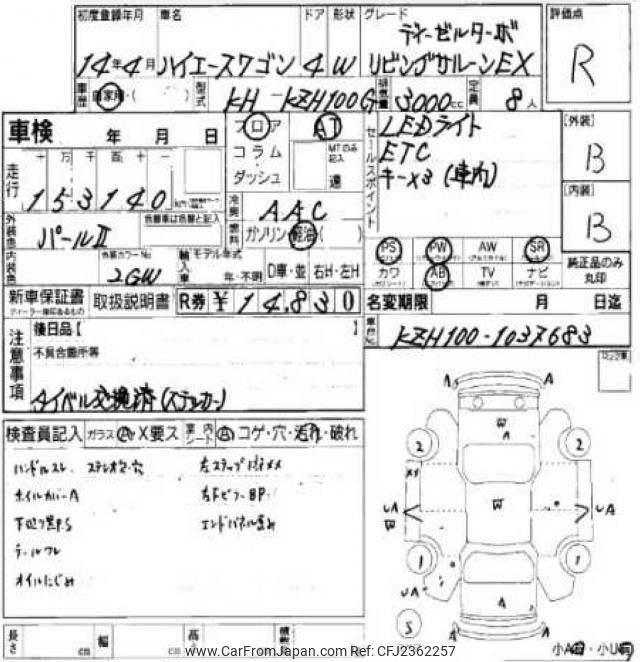 初度登録年月 車名 ドア 形状 グレード 評価点
14年4月 ハイエースワゴン 4 W ディーゼルターボ
リビングサルーンEX R
車歴 自家用・( ) 型式 KH-KZH100G 排気量 3000cc 定員 8人
車検 年 月 日
フロア AT
コラム MTのみ記入
ダッシュ 速
セールスポイント LEDライト
ETC
キー×3(車内)
[外装] B
[内装] B
走行 十 万 千 百 十 一
153140
冷房 AAC
外装色 パールII 色替車は色替と記入
燃料 ガソリン 軽油 ( )
PS PW AW SR
カワ AB TV ナビ
純正品のみ丸印
内装色 外装カラーNo 2GW
輸入車 モデル年式 年・不明 D車・並 右H・左H
新車保証書 取扱説明書 R券 ¥14,830
名変期限 月 日迄
車台No. KZH100-1037683
注意事項 後日品【 】
不具合箇所等
タイベル交換済(ステッカー)
検査員記入 ガラス A・X要ス 内 A コゲ・穴・汚れ・破れ
ハンドルスレ ステレオ欠・穴
ホイルカバーA
下回り錆P.S
テールワレ
オイルにじみ
左ステップ
右FピラーBP
エンドパネル歪み
A A
W A
2 2
XX
UA W W UA
1 1
UA A
S A A A
長さ cm 幅 cm 高さ
www.CarFromJapan.com Ref: CFJ2362257